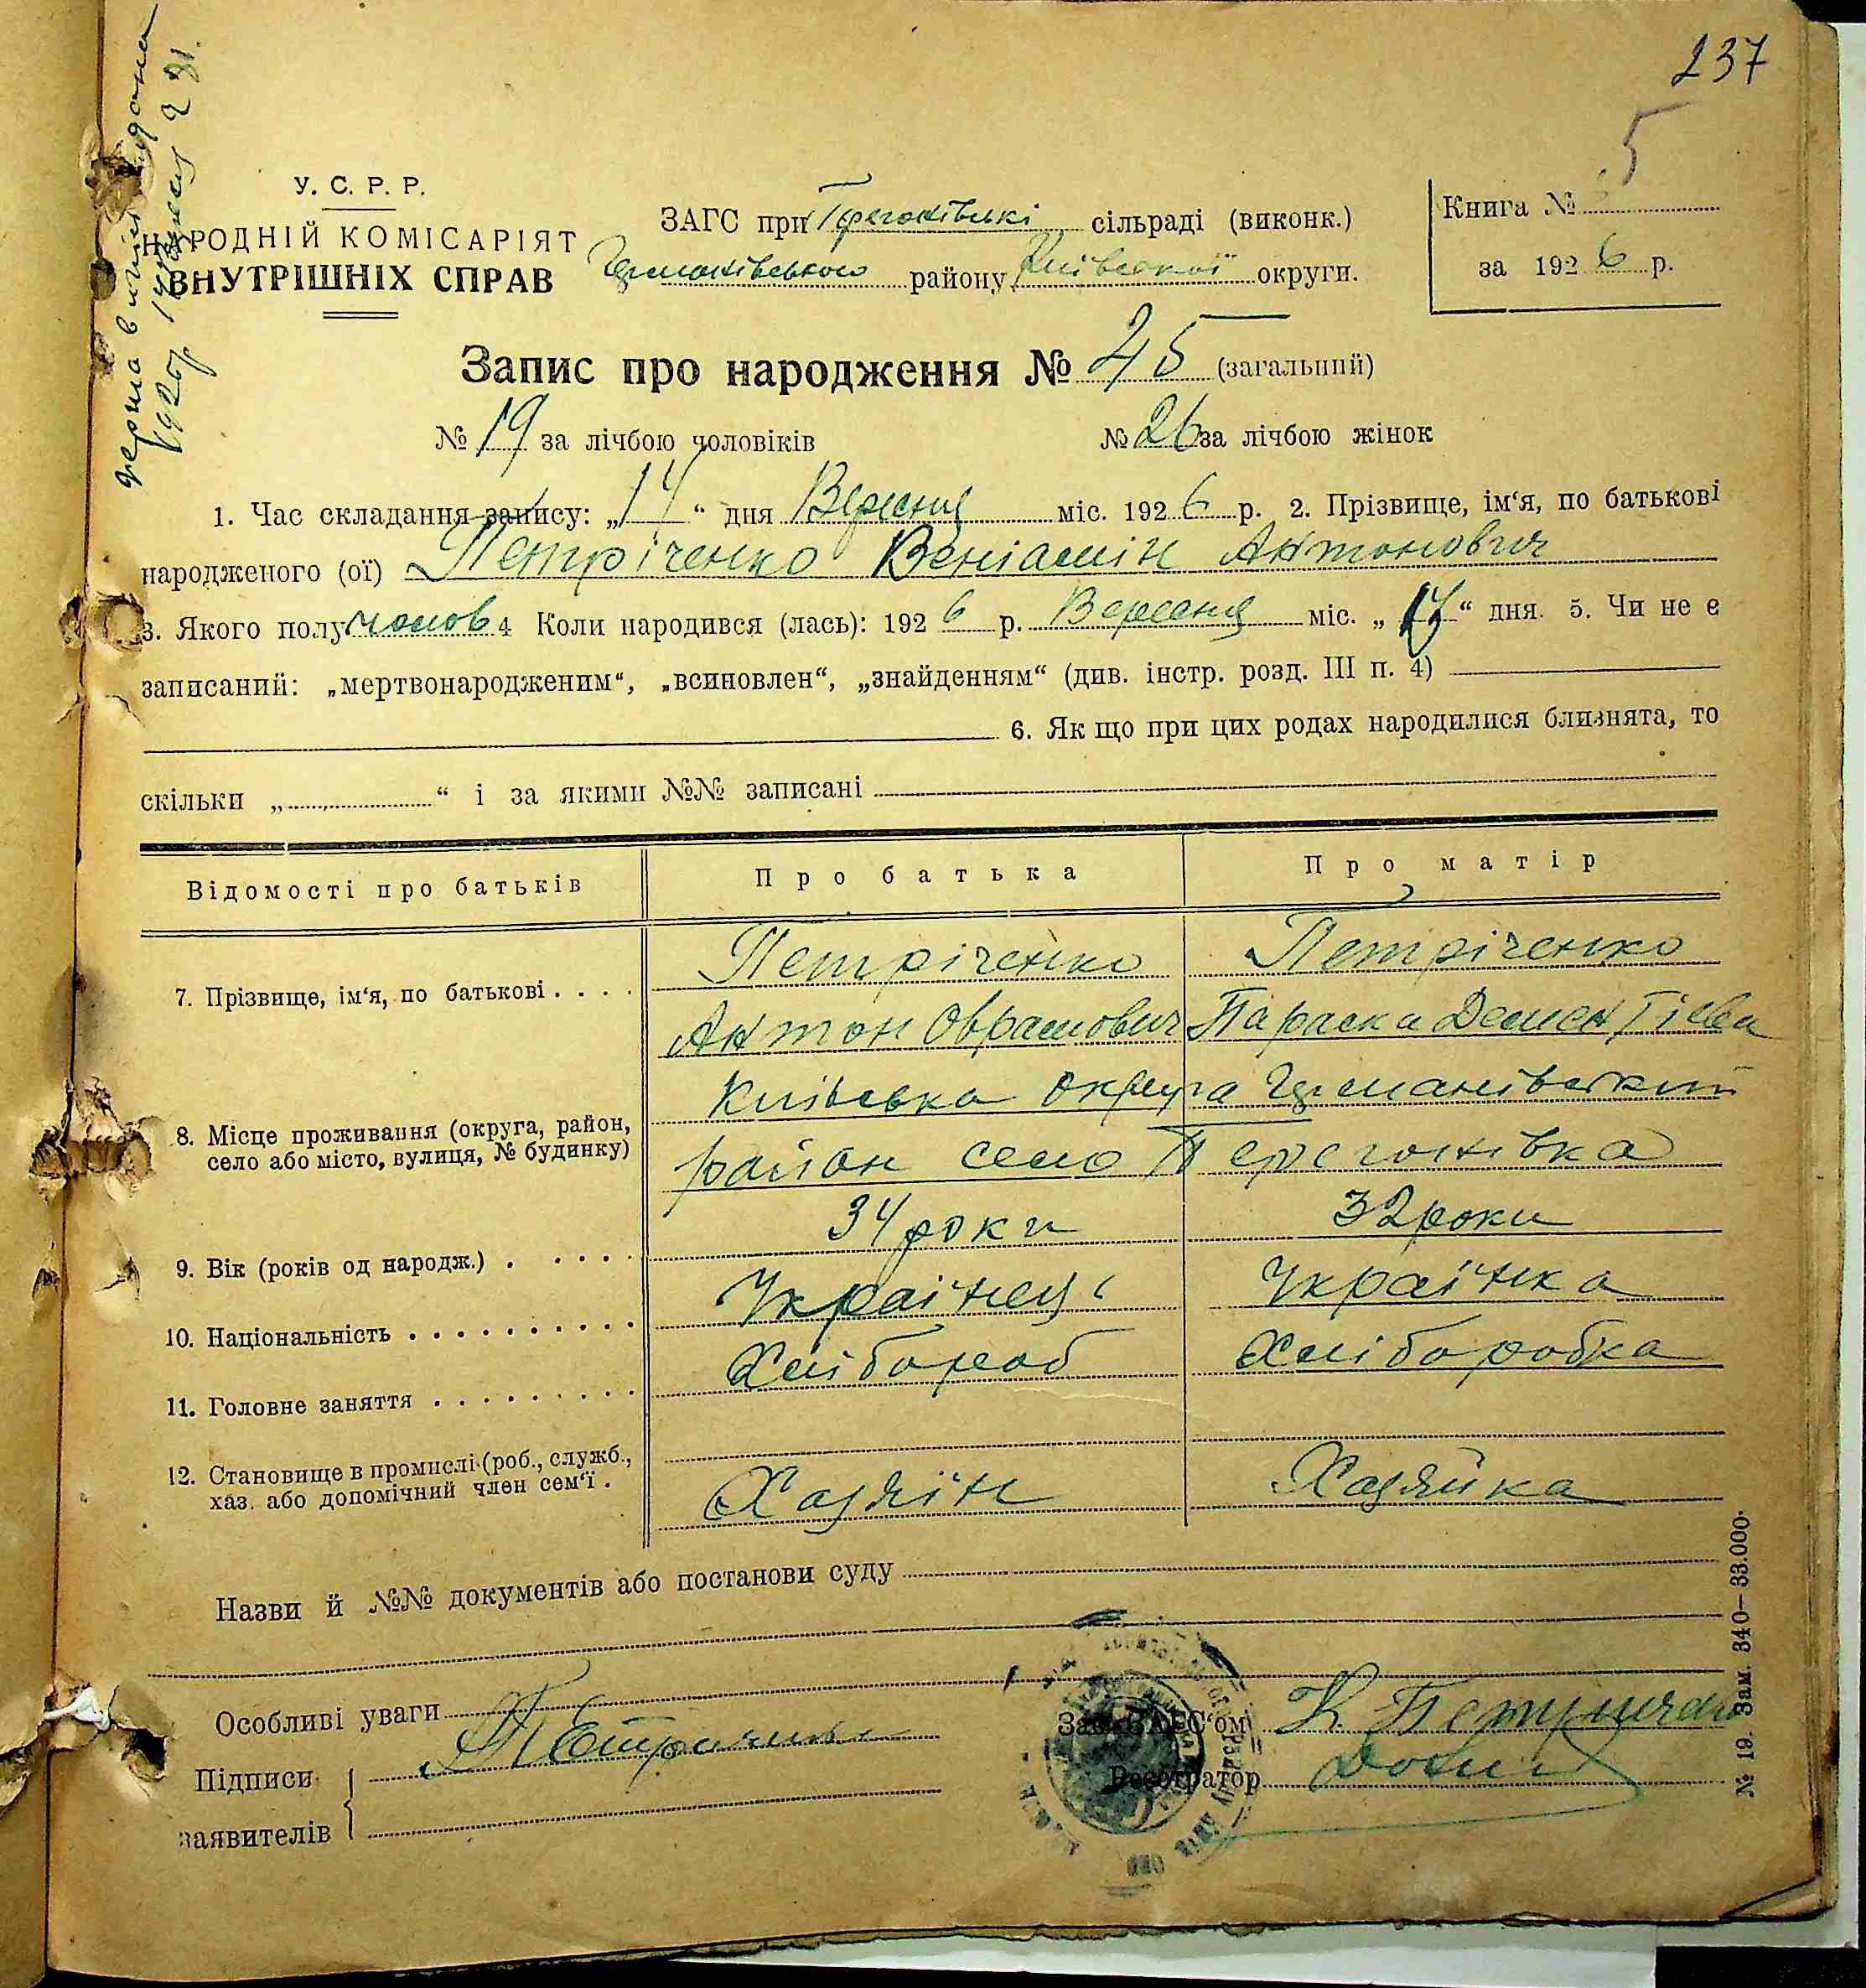 237
5
У. С. Р. Р.
НАРОДНІЙ КОМІСАРІЯТ
ВНУТРІШНІХ СПРАВ
ЗАГС при сільраді (виконк.)
району Київської округи.
Книга №
за 1926 р.
Запис про народження № 45 (загальний)
№ 19 за лічбою чоловіків № 26 за лічбою жінок
1. Час складання запису: „14“ дня Вересня міс. 1926 р. 2. Прізвище, ім‘я, по батькові
народженого (ої) Петріченко Веніамін Антонович
3. Якого полу чолов 4 Коли народився (лась): 1926 р. Вересня міс. „ “ дня. 5. Чи не є
записаний: „мертвонародженим“, „всиновлен“, „знайденням“ (див. інстр. розд. III п. 4)
6. Як що при цих родах народилися близнята, то
скільки „ “ і за якими №№ записані
Відомості про батьків Про батька Про матір
7. Прізвище, ім‘я, по батькові . . . . Петріченко Петріченко
Антон Оврамович Параска Дементієва
8. Місце проживання (округа, район, село або місто, вулиця, № будинку) Київська округа
район село Перегонівка
9. Вік (років од народж.) . . . . . 34 роки 32 роки
10. Національність . . . . . . . . . . Українець Українка
11. Головне заняття . . . . . . . . Хлібороб Хліборобка
12. Становище в промислі (роб., служб.,
хаз. або допомічний член сем‘ї . Хазяїн Хазяйка
Назви й №№ документів або постанови суду
Особливі уваги
Зав. ЗАГС‘ом К.
Підписи
заявителів
Реєстратор
№ 19. Зам. 340—33.000.